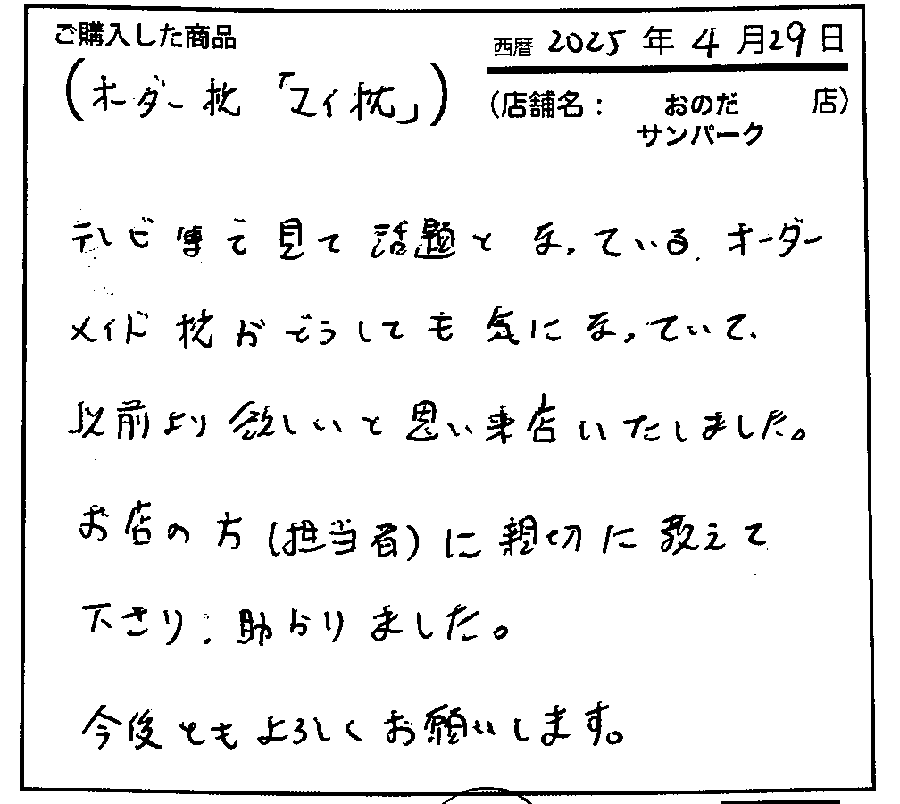 ご購入した商品
(オーダー枕「マイ枕」)
西暦 2025 年 4 月 29 日
(店舗名: おのだサンパーク 店)
テレビ等で見て話題となっている、オーダー
メイド枕がどうしても気になっていて、
以前より欲しいと思い来店いたしました。
お店の方(担当者)に親切に教えて
下さり、助かりました。
今後ともよろしくお願いします。